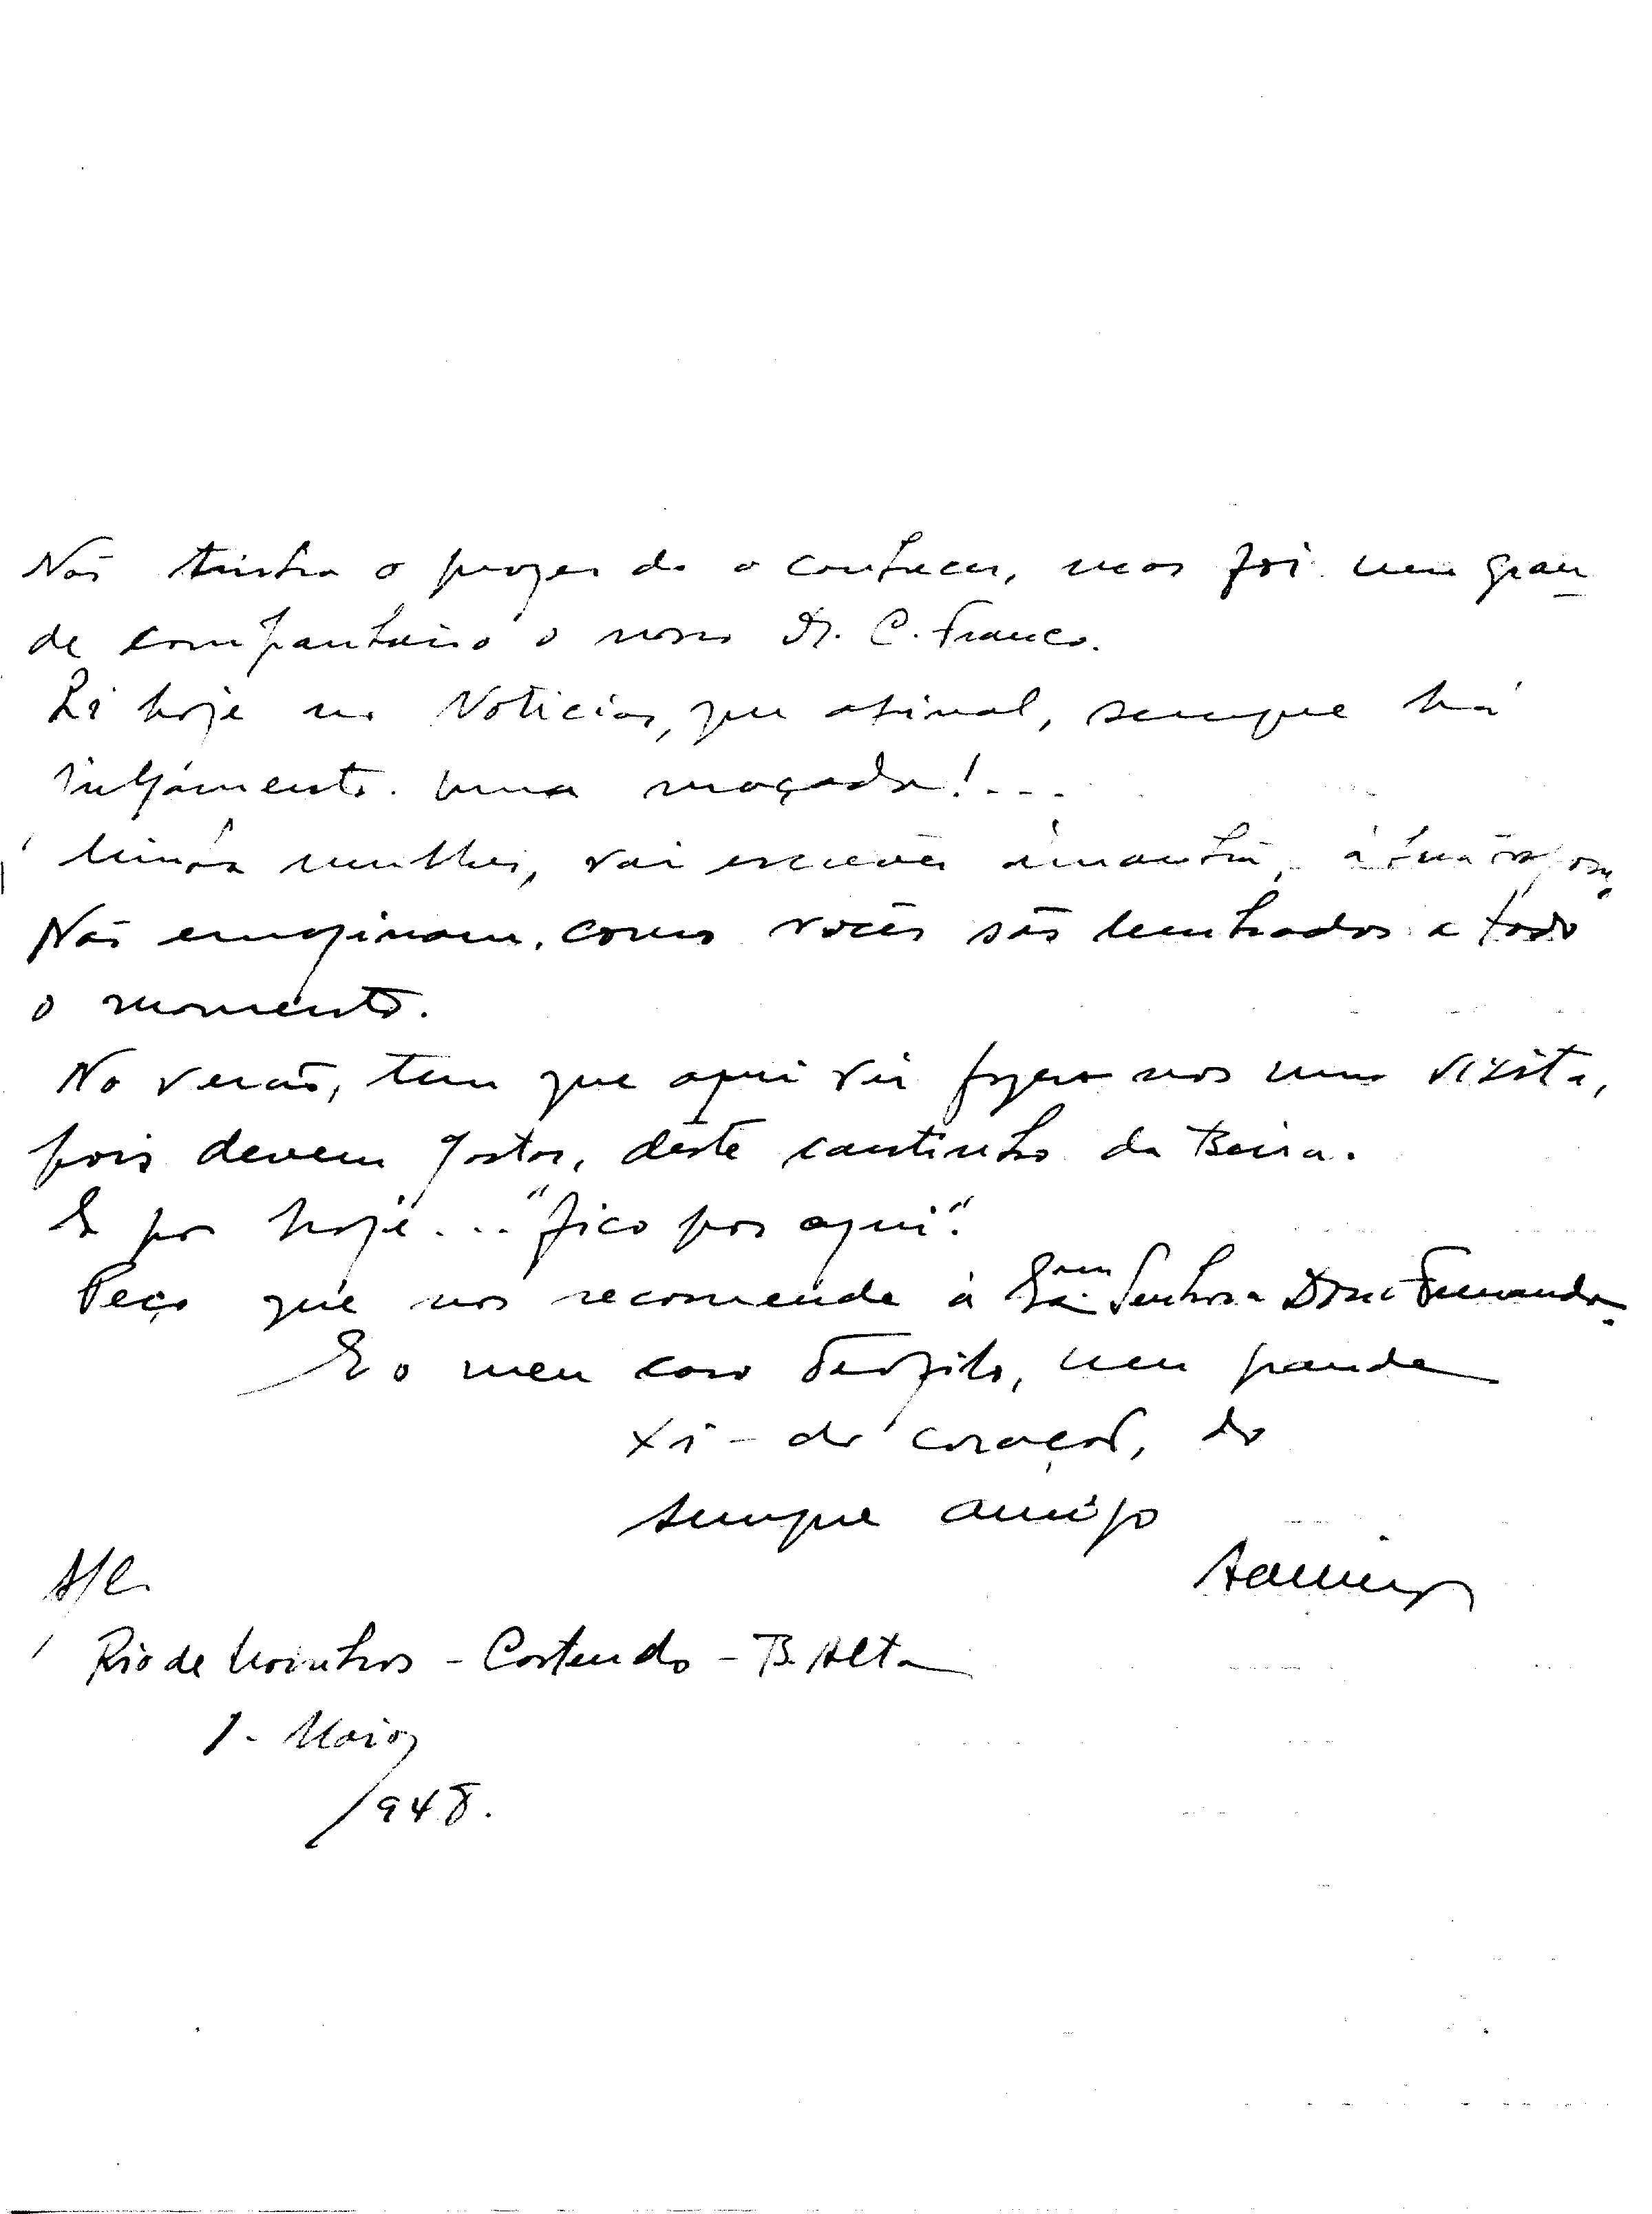 Não tinha o prazer de o conhecer, mas foi um gran
de companheiro o nosso Dr. C. Franco.
Li hoje no Noticias, que afinal, sempre há
julgamento. Uma maçada!...
Minha mulher, vai escrever àmanhã, à sua
Não emaginam, como vocês são lembrados a todo
o momento.
No verão, tem que aqui vir fazer nos uma visita,
pois devem gostar, deste cantinho da Beira.
E por hoje... "fico por aqui".
Peço que nos recomende à Exma. Senhora Dona Fernanda.
E o meu caro Teofilo, um grande
xi-do coração, do
sempre amigo
S/C.
Rio de Moinhos - Castendo - B. Alta
1- Maio
/948.